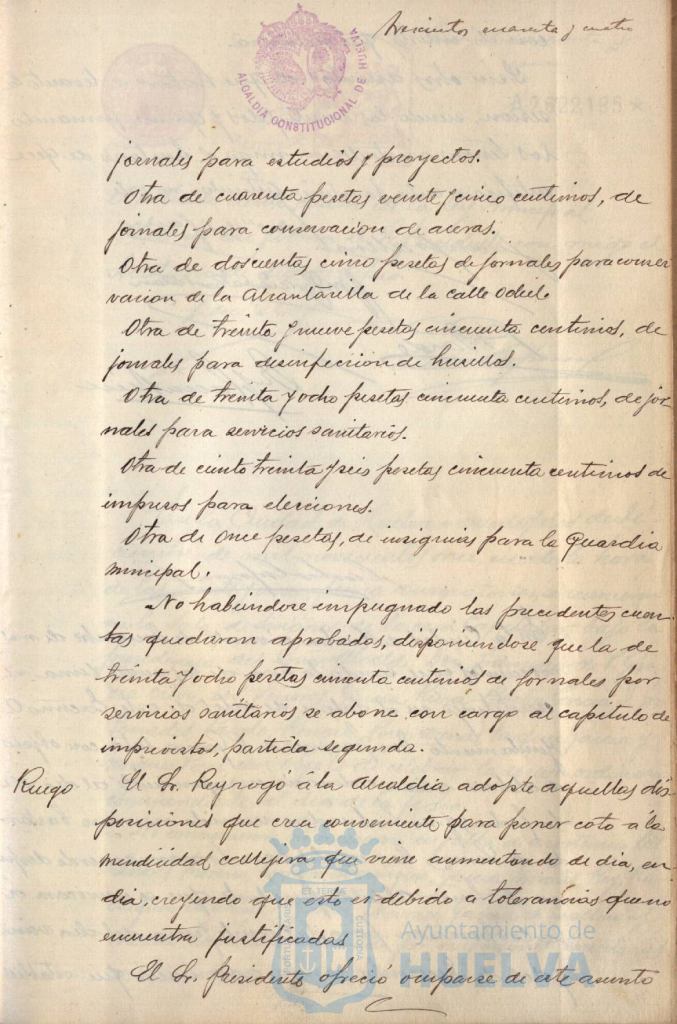 trescientos cuarenta y cuatro
ALCALDIA CONSTITUCIONAL DE HUELVA
A2622195*
jornales para estudios y proyectos.
Otra de cuarenta pesetas veinte y cinco centimos, de
jornales para conservacion de aceras.
Otra de doscientas cinco pesetas de jornales para conser
vacion de la Alcantarilla de la calle Odiel.
Otra de treinta y nueve pesetas cincuenta centimos, de
jornales para desinfeccion de husillos.
Otra de treinta y ocho pesetas cincuenta centimos, de jor-
nales para servicios sanitarios.
Otra de ciento treinta y seis pesetas cincuenta centimos de
impresos para elecciones.
Otra de once pesetas, de insignias para la Guardia
municipal.
No habiéndose impugnado las precedentes cuen-
tas quedaron aprobadas, disponiéndose que la de
treinta y ocho pesetas cincuenta centimos de jornales por
servicios sanitarios se abone con cargo al capitulo de
imprevistos, partida segunda.
Ruego El Sr. Rey rogó á la Alcaldia adopte aquellas dis-
posiciones que crea conveniente para poner coto a la
mendicidad callejera que viene aumentando de dia, en
dia, creyendo que esto es debido a tolerancias que no
encuentra justificadas
El Sr. Presidente ofreció ocuparse de este asunto
Ayuntamiento de
HUELVA